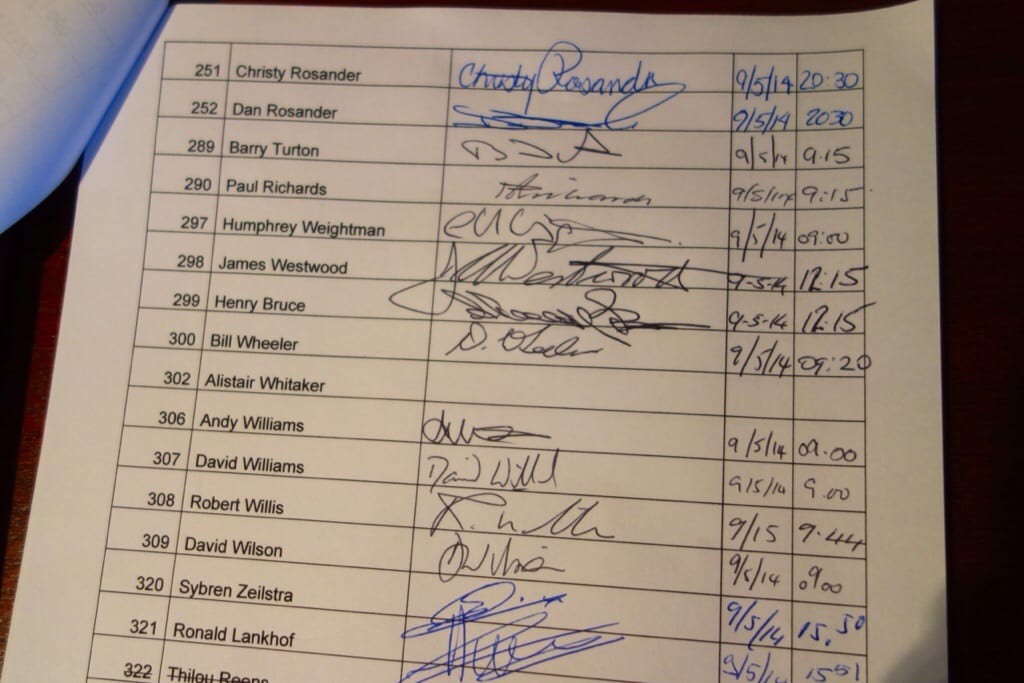 251 Christy Rosander Christy Rosander 9/5/14 20:30
252 Dan Rosander 9/5/14 2030
289 Barry Turton 9/5/14 9.15
290 Paul Richards 9/5/14 9:15
297 Humphrey Weightman 9/5/14 09:00
298 James Westwood JM Westwood 9-5-14 12.15
299 Henry Bruce 9-5-14 12.15
300 Bill Wheeler 9/5/14 09:20
302 Alistair Whitaker
306 Andy Williams 9/5/14 09.00
307 David Williams David 9/5/14 9.00
308 Robert Willis 9/15 9.44
309 David Wilson 9/5/14 0900
320 Sybren Zeilstra 9/5/14 15.50
321 Ronald Lankhof 9/5/14 1551
322 Thilou Reens